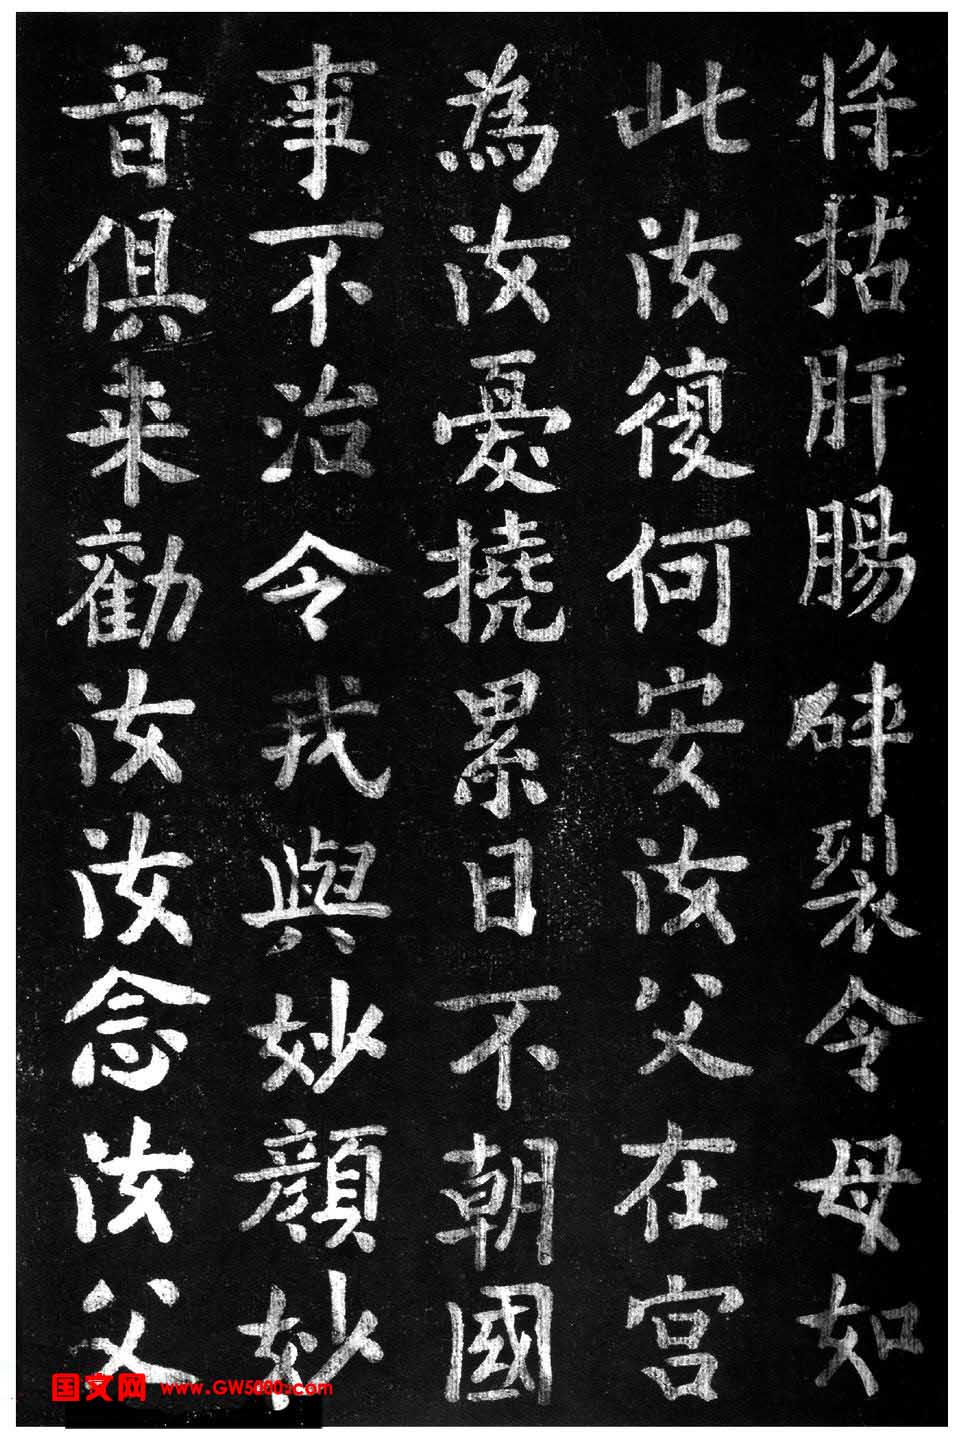 将拈肝腸碎裂令母如
此汝復何安汝父在宫
為汝憂撓累日不朝國
事不治令我與妙顔妙
音俱来勸汝汝念汝父
国文网 www.GW5000.com